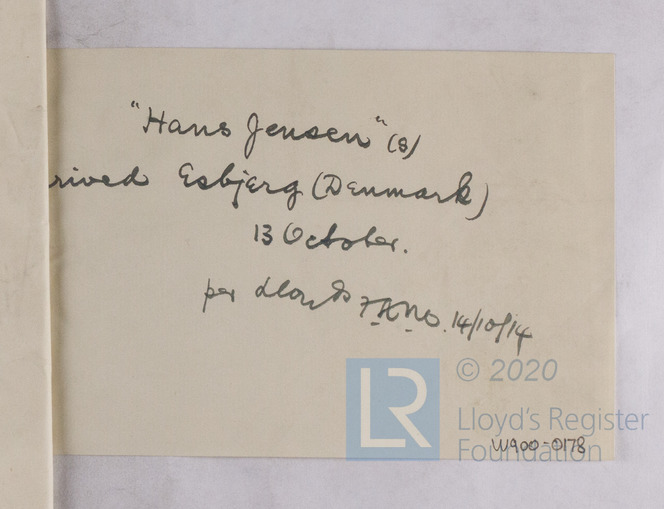 "Hans Jensen" (s)
rived Esbjerg (Denmark)
13 October.
per Lloyds 14/10/14
LR
© 2020
Lloyd's Register
Foundation
W900-0178